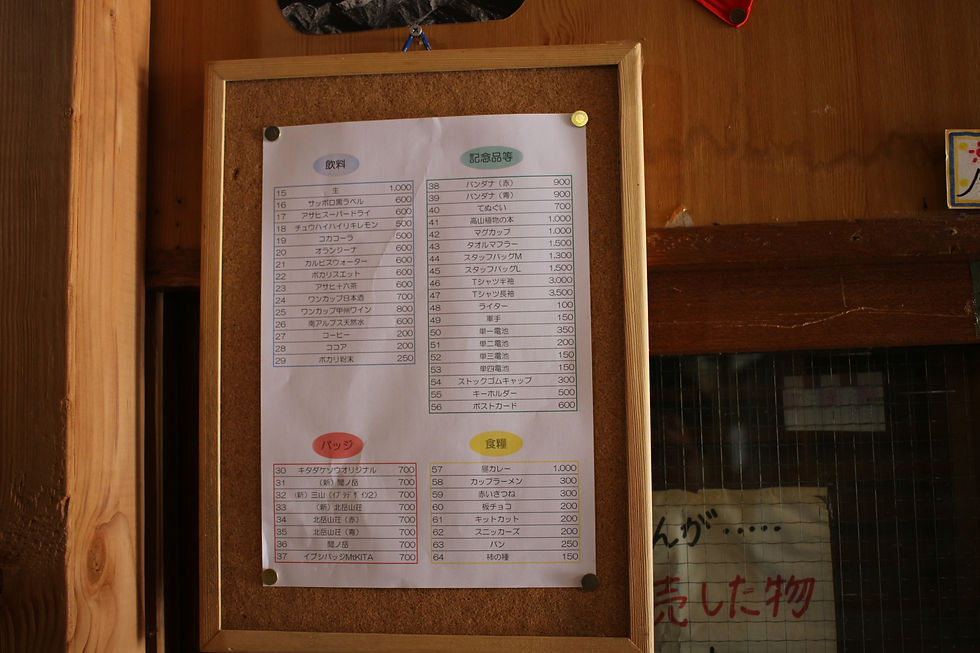 飲料
15 生 1,000
16 サッポロ黒ラベル 600
17 アサヒスーパードライ 600
18 チュウハイハイリキレモン 500
19 コカコーラ 500
20 オランジーナ 600
21 カルピスウォーター 600
22 ポカリスエット 600
23 アサヒ十六茶 600
24 ワンカップ日本酒 700
25 ワンカップ甲州ワイン 800
26 南アルプス天然水 600
27 コーヒー 200
28 ココア 200
29 ポカリ粉末 250
記念品等
38 バンダナ（赤） 900
39 バンダナ（青） 900
40 てぬぐい 700
41 高山植物の本 1,000
42 マグカップ 1,000
43 タオルマフラー 1,500
44 スタッフバッグM 1,300
45 スタッフバッグL 1,500
46 Tシャツ半袖 3,000
47 Tシャツ長袖 3,500
48 ライター 100
49 軍手 150
50 単一電池 350
51 単二電池 200
52 単三電池 150
53 単四電池 150
54 ストックゴムキャップ 300
55 キーホルダー 500
56 ポストカード 600
バッジ
30 キタダケソウオリジナル 700
31 （新）間ノ岳 700
32 （新）三山（ｲﾌﾞｼﾃﾞｻﾞｲﾝ2） 700
33 （新）北岳山荘 700
34 北岳山荘（赤） 700
35 北岳山荘（青） 700
36 間ノ岳 700
37 イブシバッジMtKITA 700
食糧
57 昼カレー 1,000
58 カップラーメン 300
59 赤いきつね 300
60 板チョコ 200
61 キットカット 200
62 スニッカーズ 200
63 パン 250
64 柿の種 150
んが‥‥‥
売した物